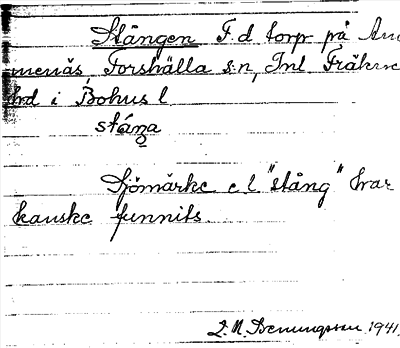 Stången F. d torp på Am
menäs, Forshälla s:n, Inl Fräkne
hd i Bohus l
stáŋa
Sjömärke e l "stång" har
kanske funnits.
1941.